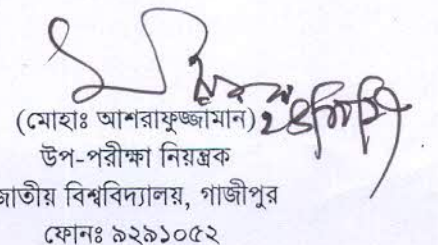 (মোহাঃ আশরাফুজ্জামান)
উপ-পরীক্ষা নিয়ন্ত্রক
জাতীয় বিশ্ববিদ্যালয়, গাজীপুর
ফোনঃ ৯২৯১০৫২